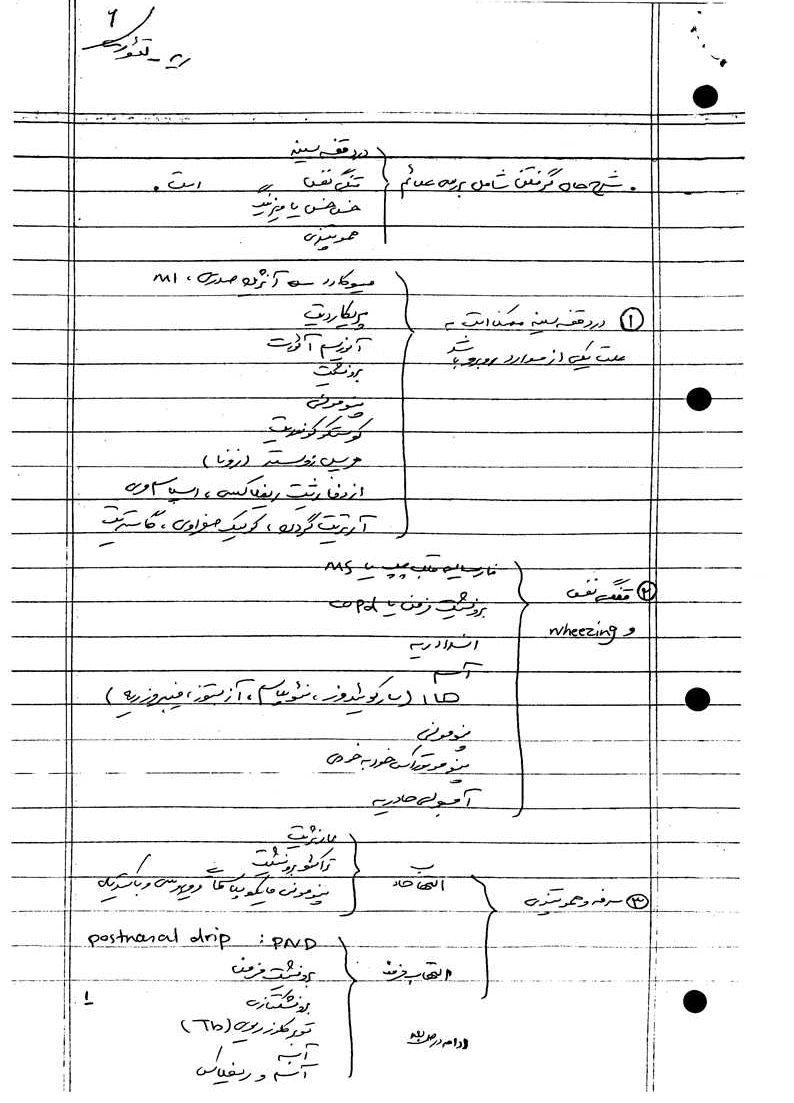 ریه - تئوری
۶
• شرح حال گرفتن شامل بررسی علائم
درد قفسه سینه
تنگی نفس
خس خس یا ویزینگ
هموپتزی
است.
① درد قفسه سینه ممکن است به
علت یکی از موارد روبرو باشد
میوکارد → آنژین صدری، MI
پریکاردیت
آنوریسم آئورت
برونشیت
پنومونی
کوستوکوندریت
هرپس زوستر (زونا)
ازوفاژیت ریفلاکسی، اسپاسم مری
آرتریت گردن، کولیک صفراوی، گاستریت
② تنگی نفس
و wheezing
نارسایی قلب چپ یا MS
برونشیت مزمن یا copd
انسداد ریه
آسم
ILD ها (سارکوئیدوز، نئوپلاسم، آزبستوز، فیبروز ریه)
پنومونی
پنوموتوراکس خودبه‌خودی
آمبولی حاد ریه
③ سرفه و هموپتزی
التهاب حاد
لارنژیت
تراکئوبرونشیت
پنومونی مایکوپلاسمائی و ویروسی و باکتریال
التهاب مزمن
PND : postnasal drip
برونشیت مزمن
برونشکتازی
توبرکلوز ریوی (Tb)
آبسه
آسم و ریفلاکس
ادامه در صفحه بعد
۱